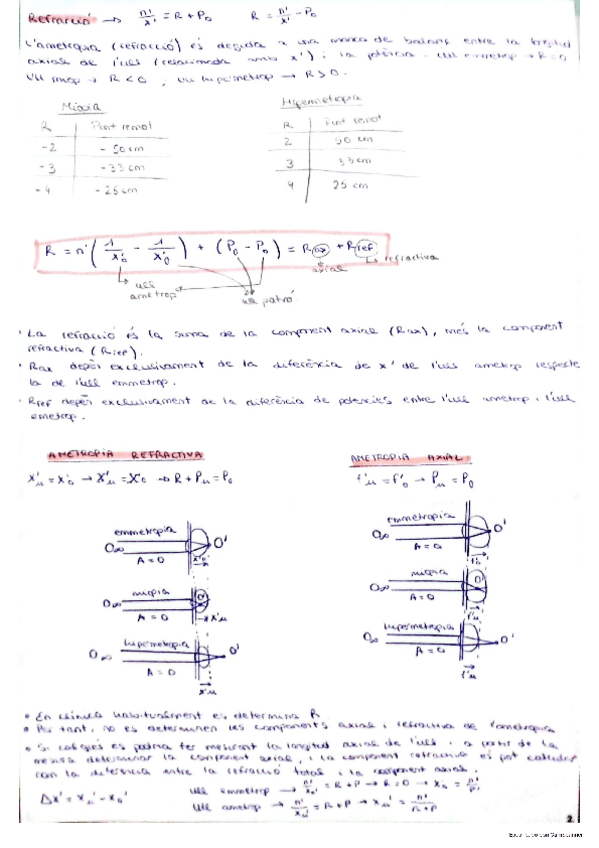 Refracció → n'/x' = R + P₀    R = n'/x' - P₀
L'ametropia (refracció) és deguda a una manca de balanç entre la longitud
axial de l'ull (relacionada amb x') i la potència. Ull emmetrop → R = 0
Ull miop → R < 0, Ull hipermetrop → R > 0.
Miopia    Hipermetropia
R    Punt remot    R    Punt remot
-2    - 50 cm    2    50 cm
-3    - 33 cm    3    33 cm
-4    - 25 cm    4    25 cm
R = n' (1/x'₀ - 1/x'₀) + (P₀ - P₀) = Rax + Rref
axial    refractiva
ull ametrop    ull patró
· La refracció és la suma de la component axial (Rax), més la component
refractiva (Rref).
· Rax depèn exclusivament de la diferència de x' de l'ull ametrop respecte
la de l'ull emmetrop.
· Rref depèn exclusivament de la diferència de potències entre l'ull ametrop i l'ull
emetrop.
AMETROPIA REFRACTIVA    AMETROPIA AXIAL
x'u = x'₀ → x'u = x'₀ → R + Pu = P₀    f'u = f'₀ → Pu = P₀
emmetropia    emmetropia
O∞    O'    O∞    O'
A = 0    x'₀    A = 0    f'₀
miopia    miopia
O∞    O'    O∞    O'
A = 0    x'u    A = 0    f'u
hipermetropia    hipermetropia
O∞    O'    O∞    O'
A = 0    x'u    A = 0    f'u
• En clínica habitualment es determina R
• Per tant, no es determinen les components axial i refractiva de l'ametropia
• Si calgués es podria fer mesurant la longitud axial de l'ull i a partir de la
mesura determinar la component axial, i la component refractiva es pot calcular
com la diferència entre la refracció total i la component axial.
Δx' = x'u - x'₀    Ull emmetrop → n'/x'₀ = R + P → R = 0 → x'₀ = n'/P
Ull ametrop → n'/x'u = R + P → x'u = n'/R+P
2